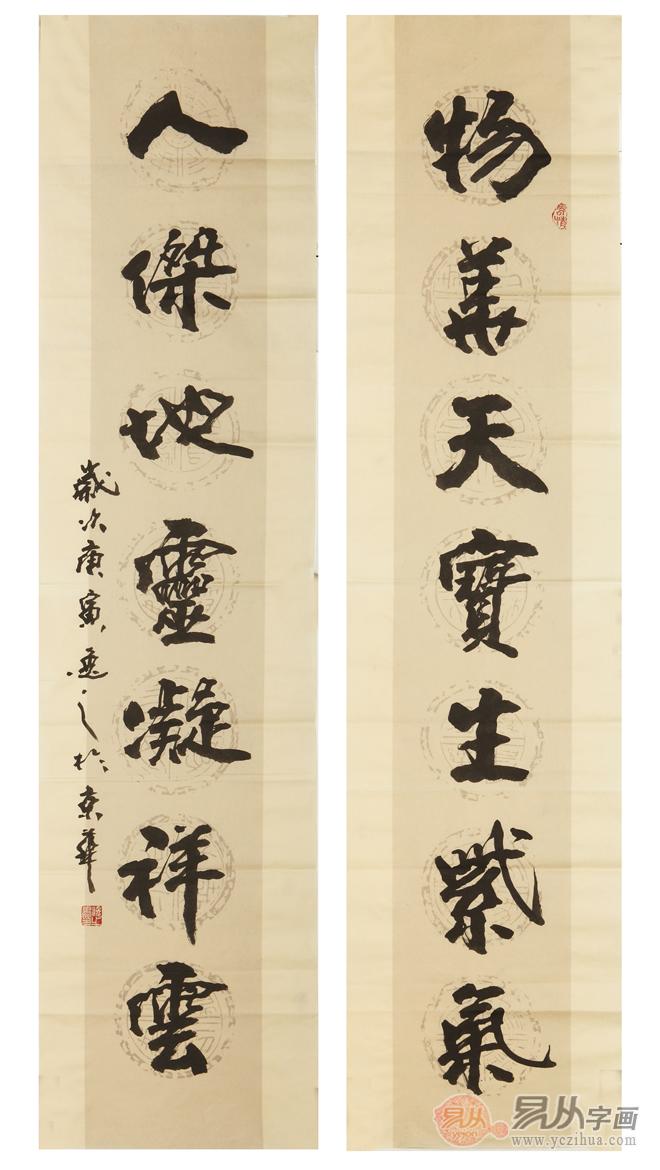 物華天寶生紫氣
人傑地靈凝祥雲
歲次庚寅逸之於京華
易从
易从字画
www.yczihua.com